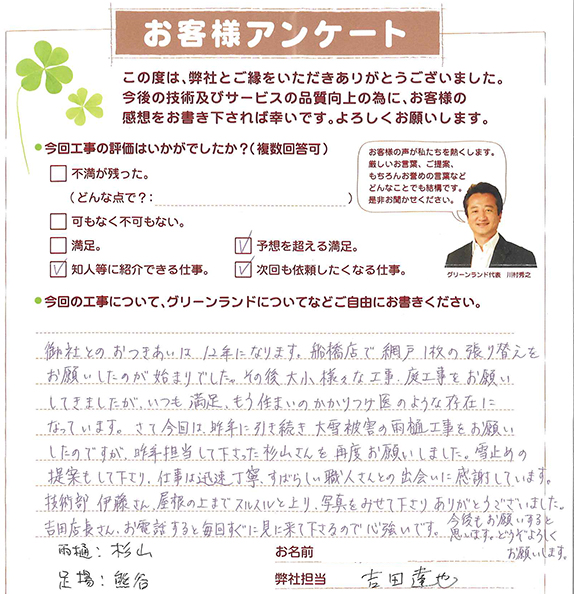 お客様アンケート
この度は、弊社とご縁をいただきありがとうございました。
今後の技術及びサービスの品質向上の為に、お客様の
感想をお書き下されば幸いです。よろしくお願いします。
今回工事の評価はいかがでしたか？（複数回答可）
不満が残った。
（どんな点で？：　）
可もなく不可もない。
満足。
予想を超える満足。
知人等に紹介できる仕事。
次回も依頼したくなる仕事。
お客様の声が私たちを熱くします。
厳しいお言葉、ご提案、
もちろんお誉めの言葉など
どんなことでも結構です。
是非お聞かせください。
グリーンランド代表　川村秀之
今回の工事について、グリーンランドについてなどご自由にお書きください。
御社とのおつきあいは12年になります。船橋店で網戸1枚の張り替えを
お願いしたのが始まりでした。その後大小様々な工事・庭工事をお願い
してきましたが、いつも満足、もう住まいのかかりつけ医のような存在に
なっています。さて今回は、昨年に引き続き大雪被害の雨樋工事をお願い
したのですが、昨年担当して下さった杉山さんを再度お願いしました。雪止めの
提案もして下さり、仕事は迅速丁寧、すばらしい職人さんとの出会いに感謝しています。
技術部 伊藤さん、屋根の上までスルスルと上り、写真をみせて下さりありがとうございました。
吉田店長さん、お電話すると毎回すぐに見に来て下さるので心強いです。
今後もお願いすると
思います。どうぞよろしく
お願いします。
雨樋：杉山
足場：熊谷
お名前
弊社担当　吉田達也